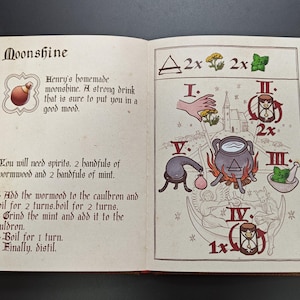 Moonshine
Henry's homemade
moonshine. A strong drink
that is sure to put you in a
good mood.
You will need spirits, 2 handfuls of
wormwood and 2 handfuls of mint.
Add the wormood to the cauldron and
boil for 2 turns.boil for 2 turns.
Grind the mint and add it to the
cauldron.
Boil for 1 turn.
Finally, distil.
2x 2x
I. II.
2x
V. III.
IV.
1x